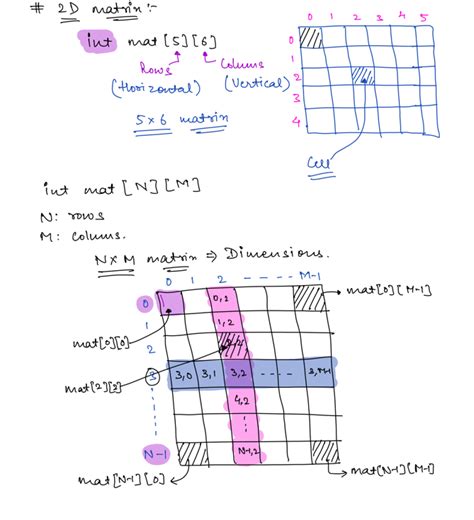 # 2D matrix:-
int mat [5][6]
Rows Columns
(Horizontal) (Vertical)
5 x 6 matrix
0 1 2 3 4 5
0
1
2
3
4
Cell
int mat [N][M]
N: rows
M: colums.
N x M matrix ⇒ Dimensions.
0 1 2 ---- M-1
0 0,2 → mat[0][M-1]
1 1,2
mat[0][0]
2 2,2
mat[2][2]
3 3,0 3,1 3,2 ---- 3,M-1
4,2
N-1 N-1,2
mat[N-1][0] mat[N-1][M-1]